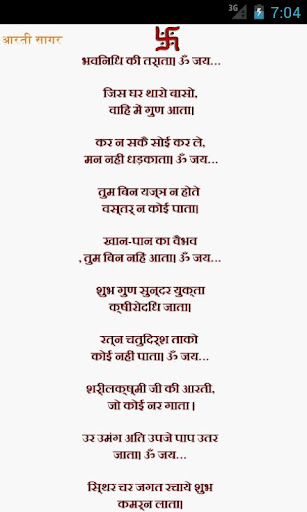 3G 7:04
आरती सागर
भवनिधि की त्राता। ॐ जय...
जिस घर थारो वासो,
वाहि में गुण आता।
कर न सकै सोई कर ले,
मन नहीं धड़काता। ॐ जय...
तुम बिन यज्ञ न होते
वस्त्र न कोई पाता।
खान-पान का वैभव
, तुम बिन नहिं आता। ॐ जय...
शुभ गुण सुन्दर युक्ता
क्षीरोदधि जाता।
रत्न चतुर्दिश ताको
कोई नहीं पाता। ॐ जय...
श्रीलक्ष्मी जी की आरती,
जो कोई नर गाता ।
उर उमंग अति उपजे पाप उतर
जाता। ॐ जय...
स्थिर चर जगत रचाये शुभ
कर्म नर लाता।